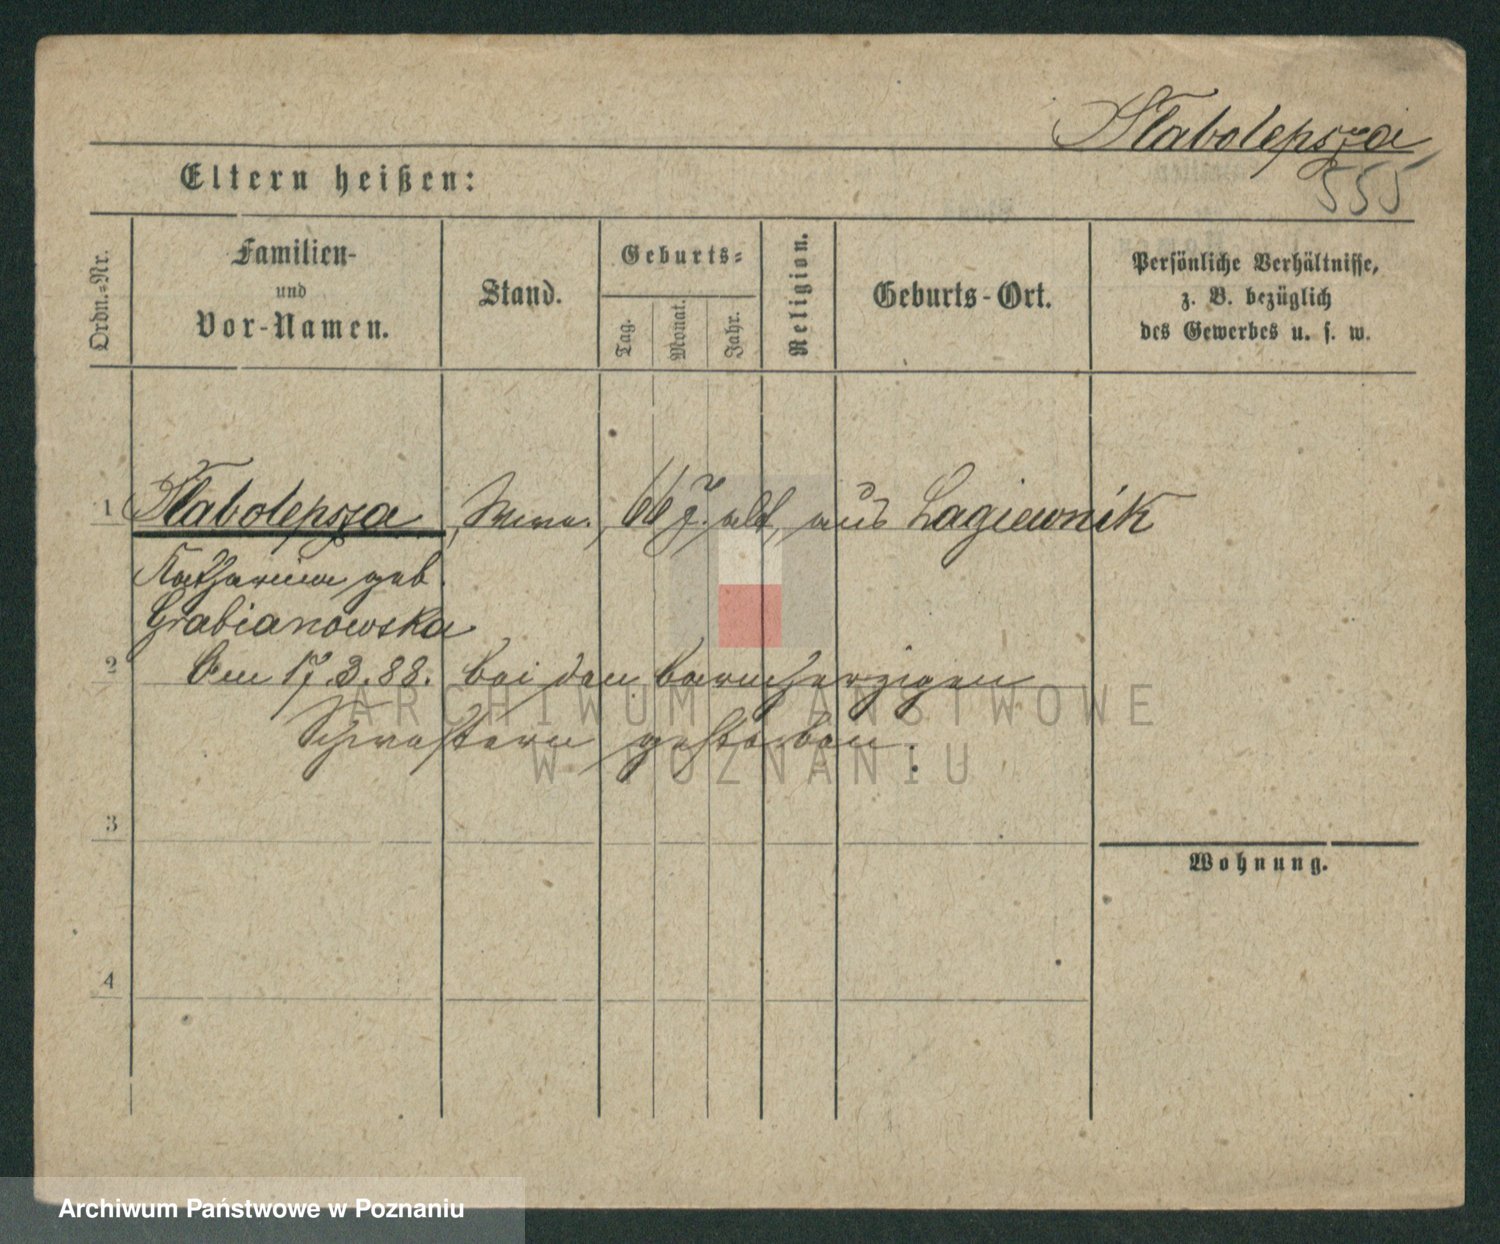 Slabolepsza
555
Eltern heißen:
Ordn.-Nr.
Familien-
und
Vor-Namen.
Stand.
Geburts-
Tag.
Monat.
Jahr.
Religion.
Geburts-Ort.
Persönliche Verhältnisse,
z. B. bezüglich
des Gewerbes u. s. w.
1 Slabolepsza, Wwe., 66 J. alt, aus Lagiewnik
Katharina geb.
Grabianowska
2 Am 17.3.88. bei den barmherzigen
Schwestern gestorben.
3
Wohnung.
4
ARCHIWUM PAŃSTWOWE
W POZNANIU
Archiwum Państwowe w Poznaniu